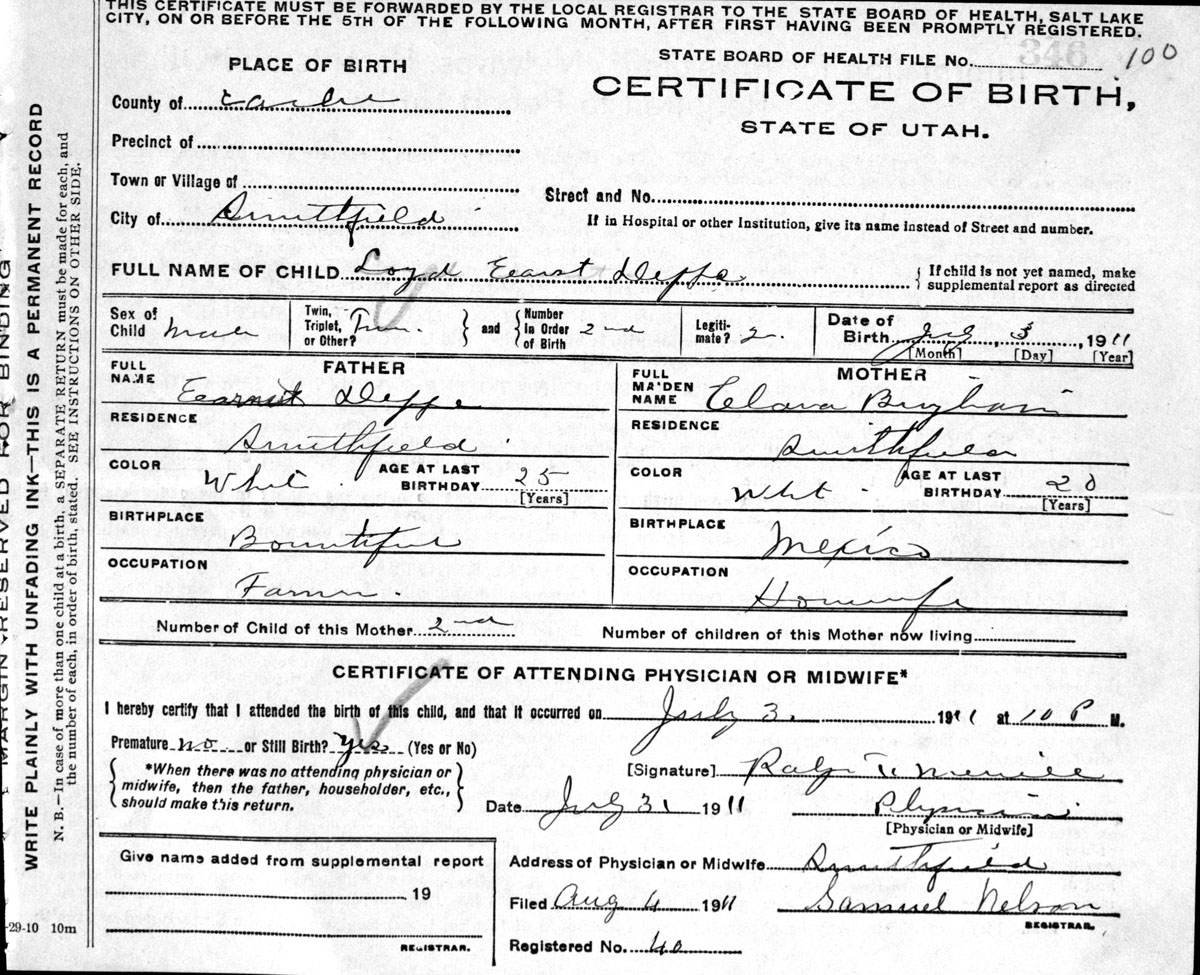 THIS CERTIFICATE MUST BE FORWARDED BY THE LOCAL REGISTRAR TO THE STATE BOARD OF HEALTH, SALT LAKE
CITY, ON OR BEFORE THE 5TH OF THE FOLLOWING MONTH, AFTER FIRST HAVING BEEN PROMPTLY REGISTERED.
STATE BOARD OF HEALTH FILE No. 346 100
PLACE OF BIRTH
CERTIFICATE OF BIRTH,
STATE OF UTAH.
County of Cache
Precinct of
Town or Village of
Street and No.
City of Smithfield
If in Hospital or other Institution, give its name instead of Street and number.
FULL NAME OF CHILD Loyd Earnst Deppe
{ If child is not yet named, make
supplemental report as directed
Sex of
Child Male
Twin,
Triplet,
or Other? Twin
and
Number
in Order
of Birth 2nd
Legiti-
mate?
Date of
Birth 3 1911
[Month] [Day] [Year]
FATHER
FULL
NAME Earnst Deppe
RESIDENCE
Smithfield
COLOR White
AGE AT LAST
BIRTHDAY 25
[Years]
BIRTHPLACE
Bountiful
OCCUPATION
Farmer
MOTHER
FULL
MAIDEN
NAME Clara Bingham
RESIDENCE
Smithfield
COLOR White
AGE AT LAST
BIRTHDAY 20
[Years]
BIRTHPLACE
Mexico
OCCUPATION
Housewife
Number of Child of this Mother 2nd
Number of children of this Mother now living
CERTIFICATE OF ATTENDING PHYSICIAN OR MIDWIFE*
I hereby certify that I attended the birth of this child, and that it occurred on July 3. 1911 at 10 P M.
Premature no or Still Birth? Yes (Yes or No)
*When there was no attending physician or
midwife, then the father, householder, etc.,
should make this return.
[Signature] Ralph T. Merrill
Date July 31 1911 Physician
[Physician or Midwife]
Give name added from supplemental report
19
REGISTRAR.
Address of Physician or Midwife Smithfield
Filed Aug 4 1911 Samuel Nelson
REGISTRAR.
Registered No. 40
MARGIN RESERVED FOR BINDING
WRITE PLAINLY WITH UNFADING INK—THIS IS A PERMANENT RECORD
N. B.—In case of more than one child at a birth, a SEPARATE RETURN must be made for each, and
the number of each, in order of birth, stated. SEE INSTRUCTIONS ON OTHER SIDE.
-29-10 10m